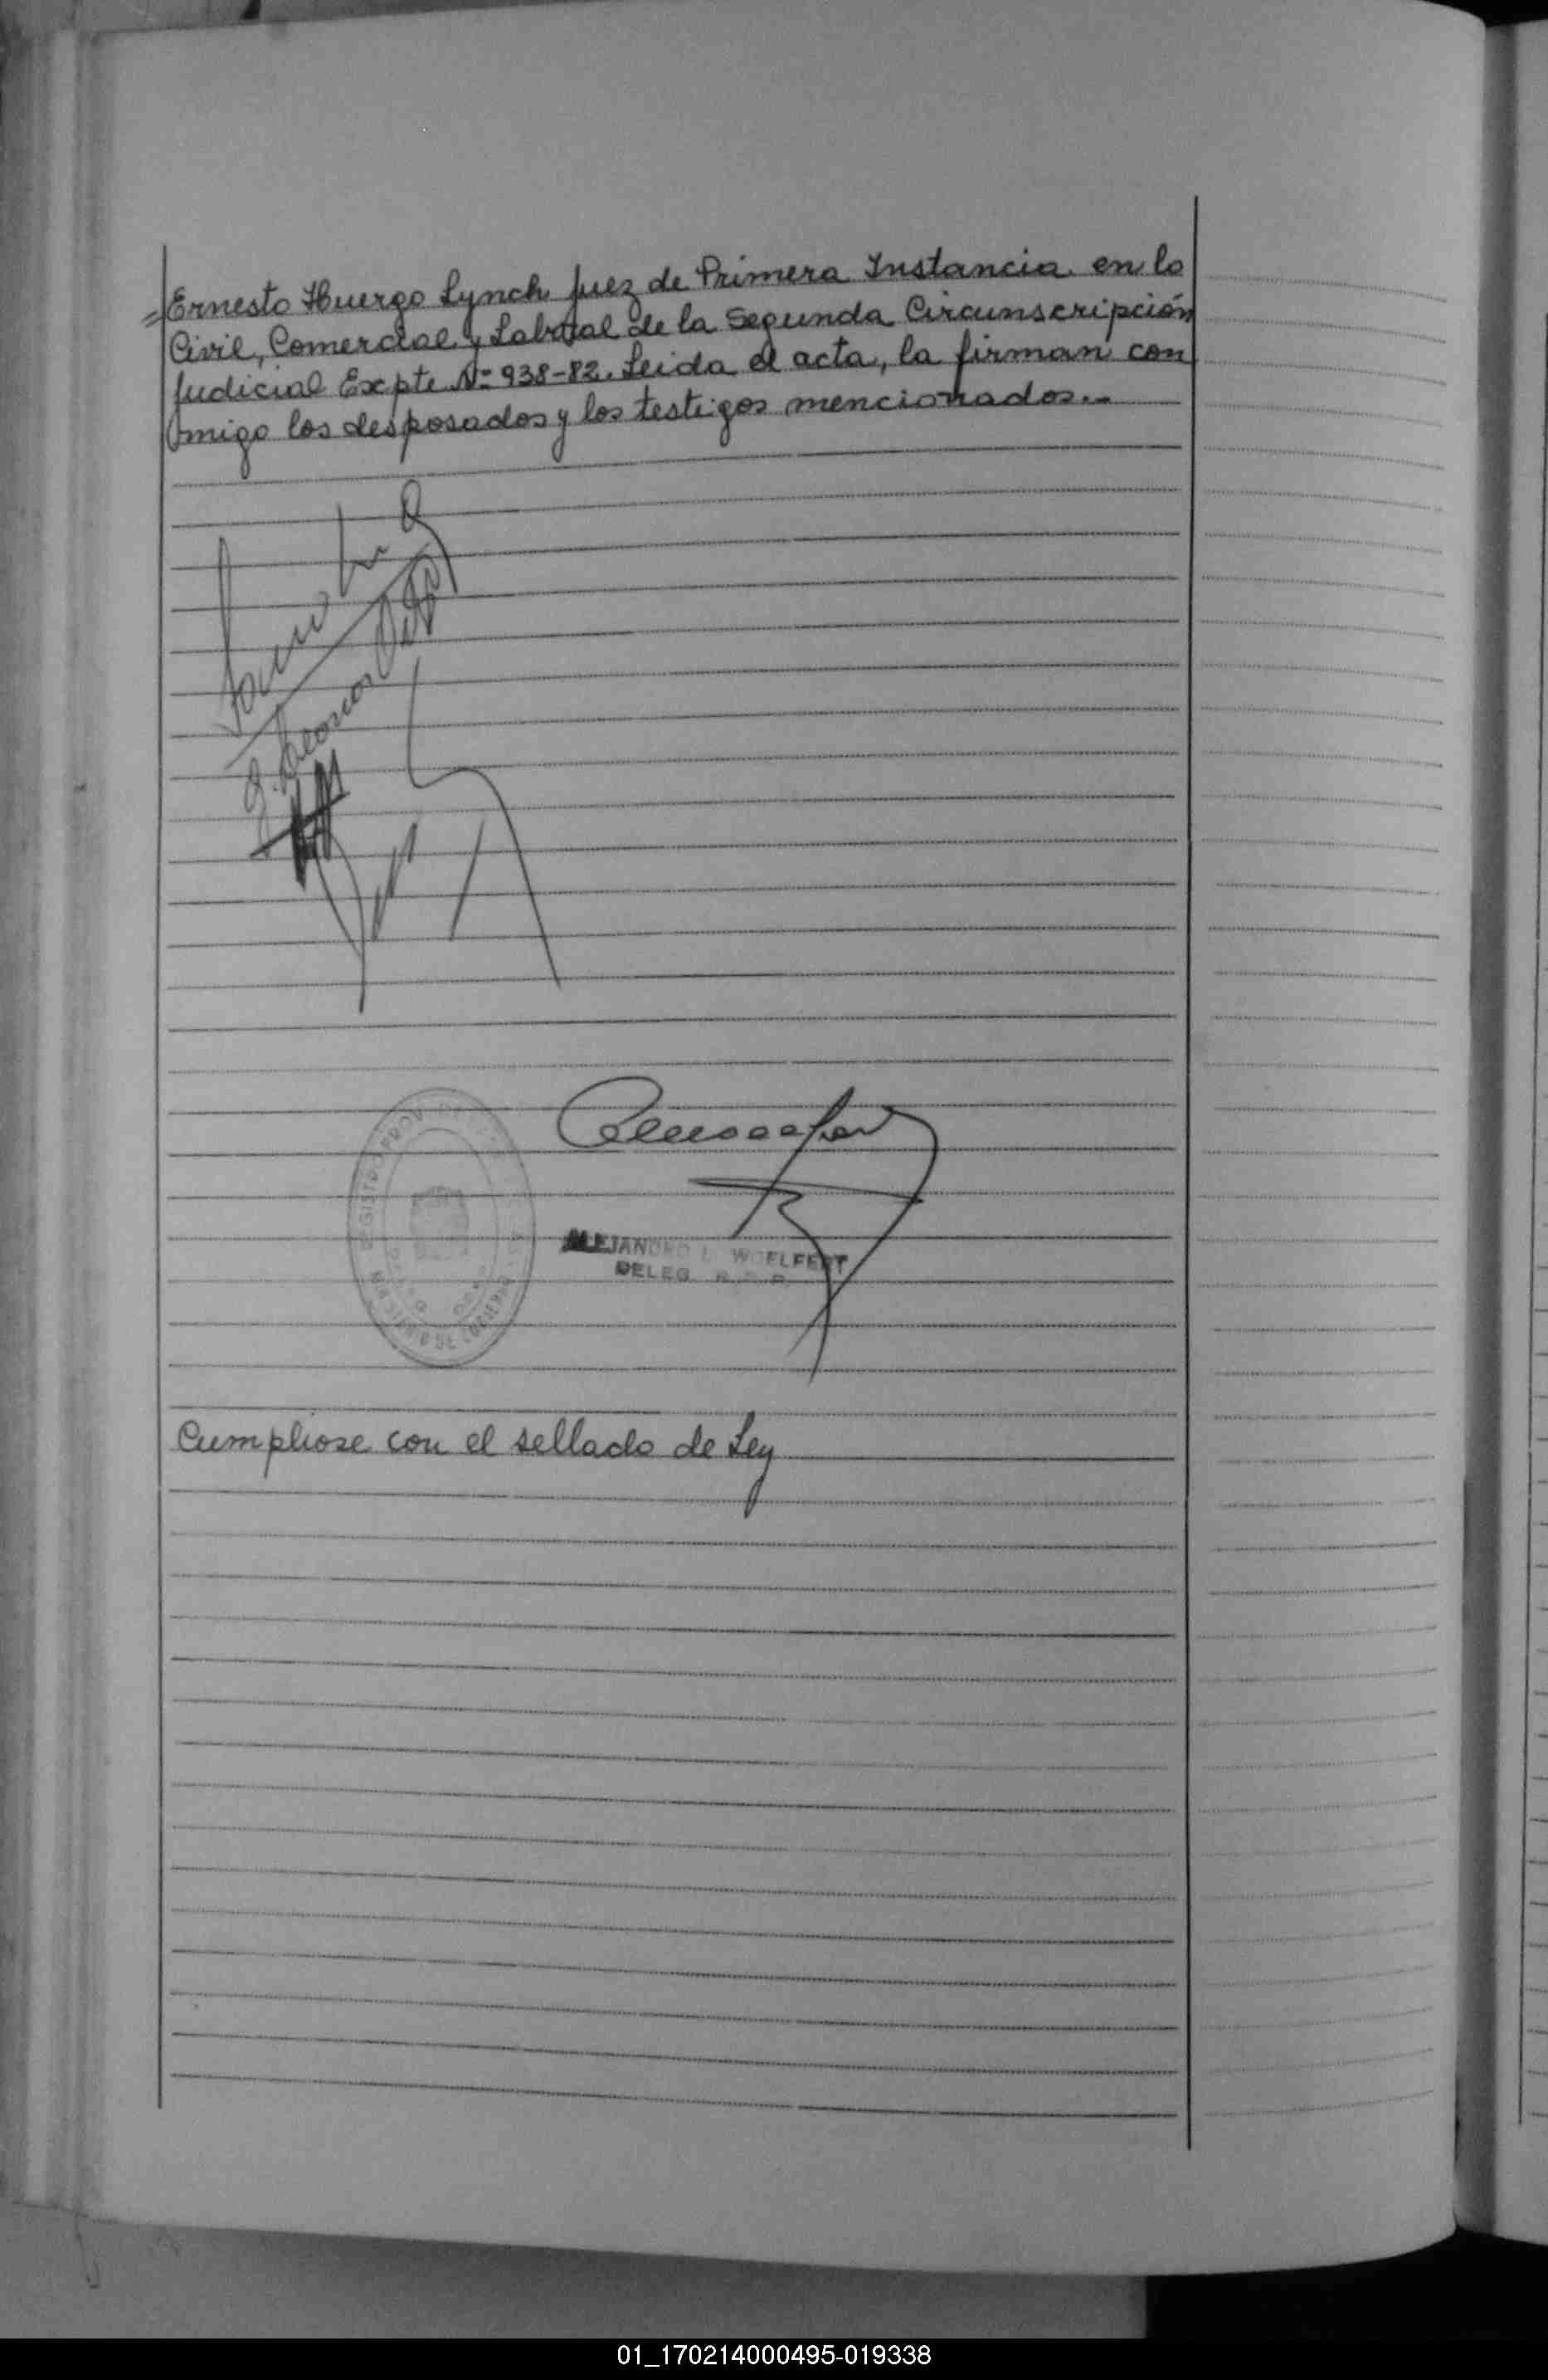 =Ernesto Huergo Lynch Juez de Primera Instancia en lo
Civil, Comercial y Laboral de la Segunda Circunscripción
Judicial Expte Nº 938-82. Leida el acta, la firman con
migo los desposados y los testigos mencionados.-
ALEJANDRO L. WOELFERT
DELEG. R.
REGISTRO PROV.
Cumpliose con el sellado de Ley
01_170214000495-019338